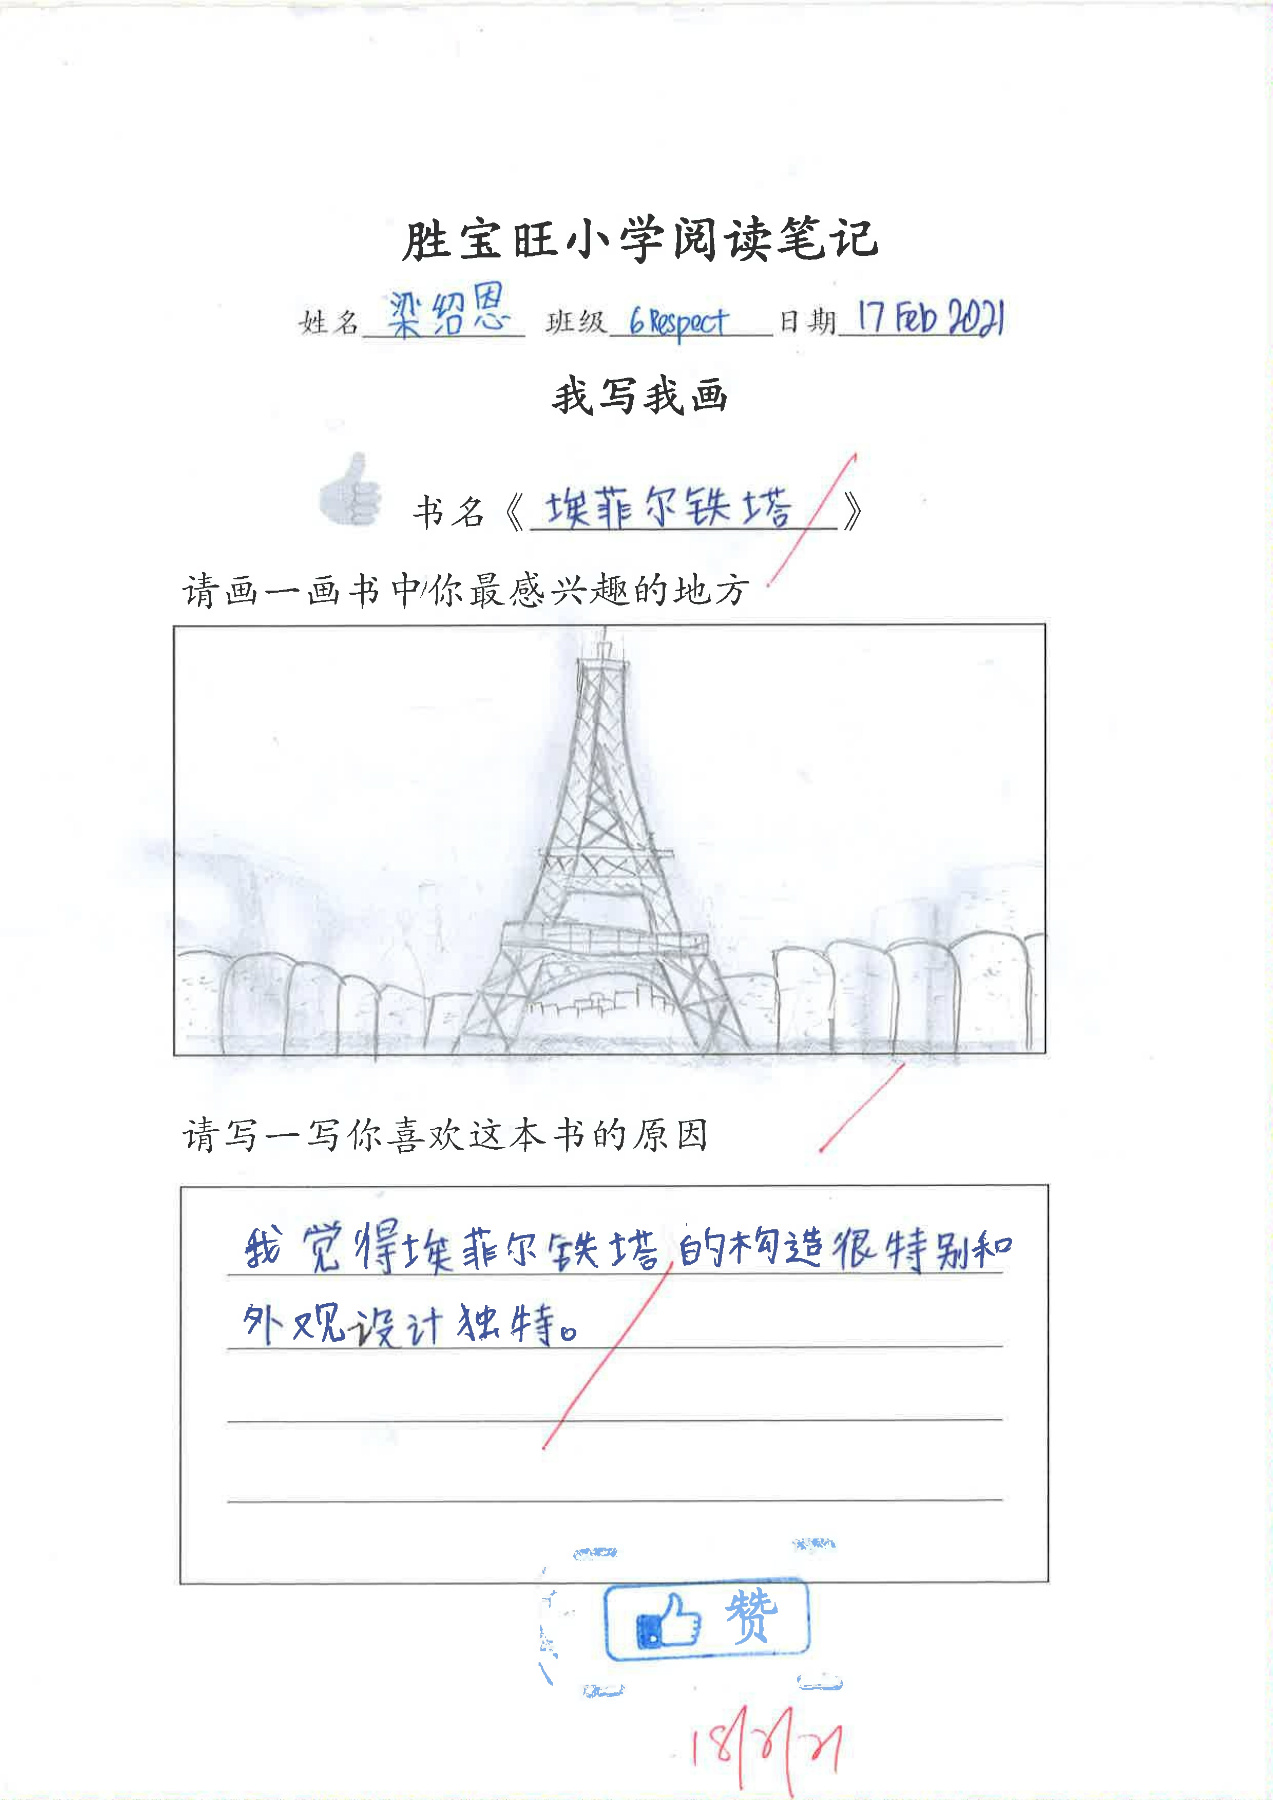 胜宝旺小学阅读笔记
姓名 梁绍恩 班级 6 Respect 日期 17 Feb 2021
我写我画
书名《埃菲尔铁塔》
请画一画书中你最感兴趣的地方
请写一写你喜欢这本书的原因
我觉得埃菲尔铁塔的构造很特别和
外观设计独特。
赞
18/2/21